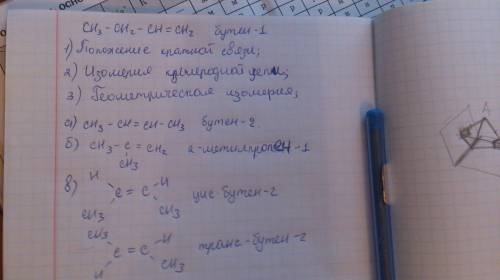 CH₃ - CH₂ - CH = CH₂ бутен-1
1) Положение кратной связи;
2) Изомерия углеродной цепи;
3) Геометрическая изомерия;
а) CH₃ - CH = CH - CH₃ бутен-2.
б) CH₃ - C = CH₂ 2-метилпропен-1
CH₃
в) H H
C = C цис-бутен-2
CH₃ CH₃
CH₃ H
C = C транс-бутен-2
H CH₃